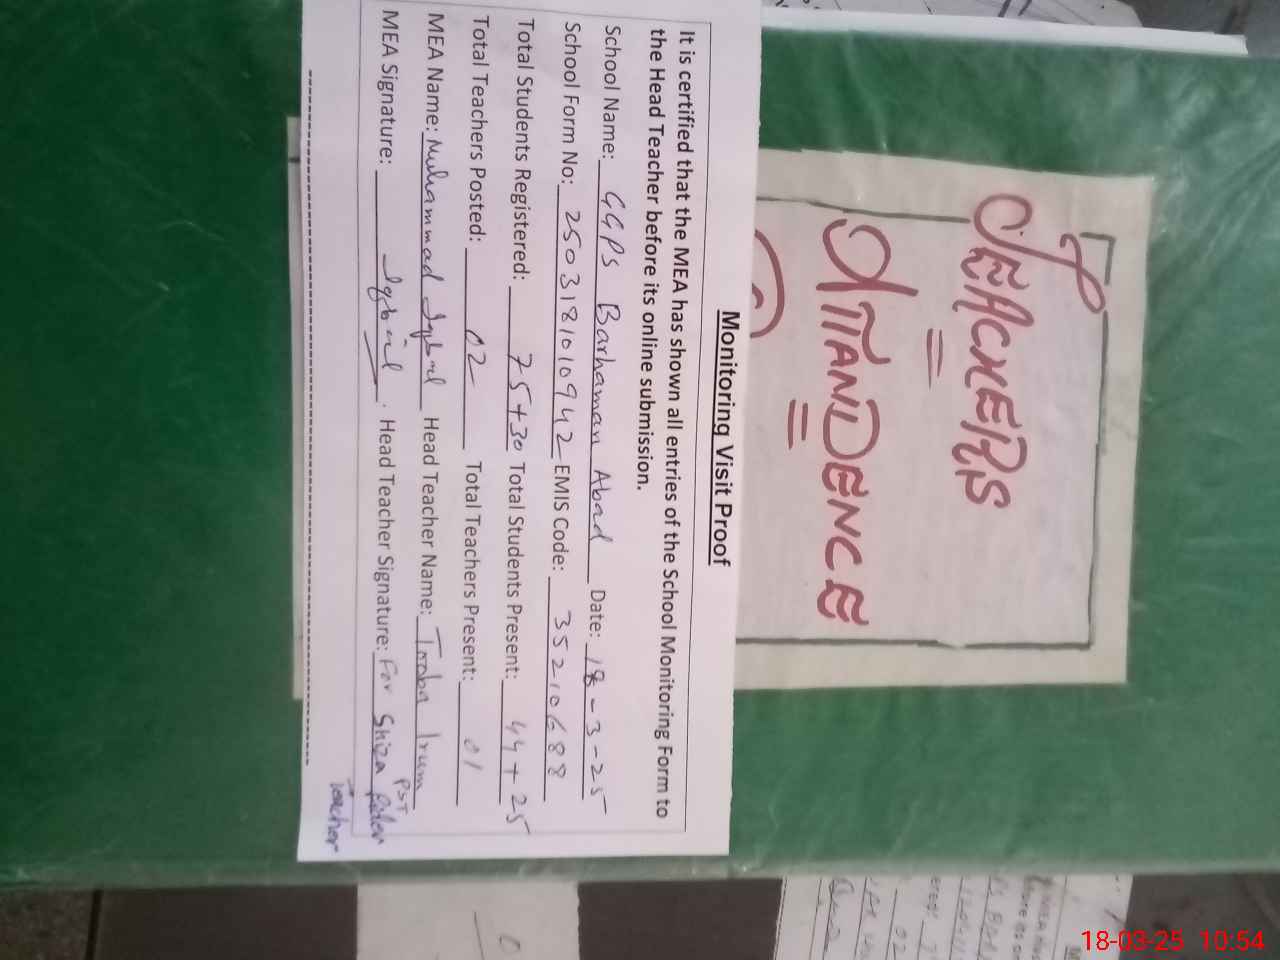 TEACHERS
ATTANDENCE
Monitoring Visit Proof
It is certified that the MEA has shown all entries of the School Monitoring Form to
the Head Teacher before its online submission.
School Name: GGPS Barhaman Abad Date: 18-3-25
School Form No: 2503181010942 EMIS Code: 35210688
Total Students Registered: 75+30 Total Students Present: 44+25
Total Teachers Posted: 02 Total Teachers Present: 01
MEA Name: Muhammad Iqbal Head Teacher Name: Tooba Irum
MEA Signature: Iqbal. Head Teacher Signature: For Shiza
PST
Teacher
02
18-03-25 10:54